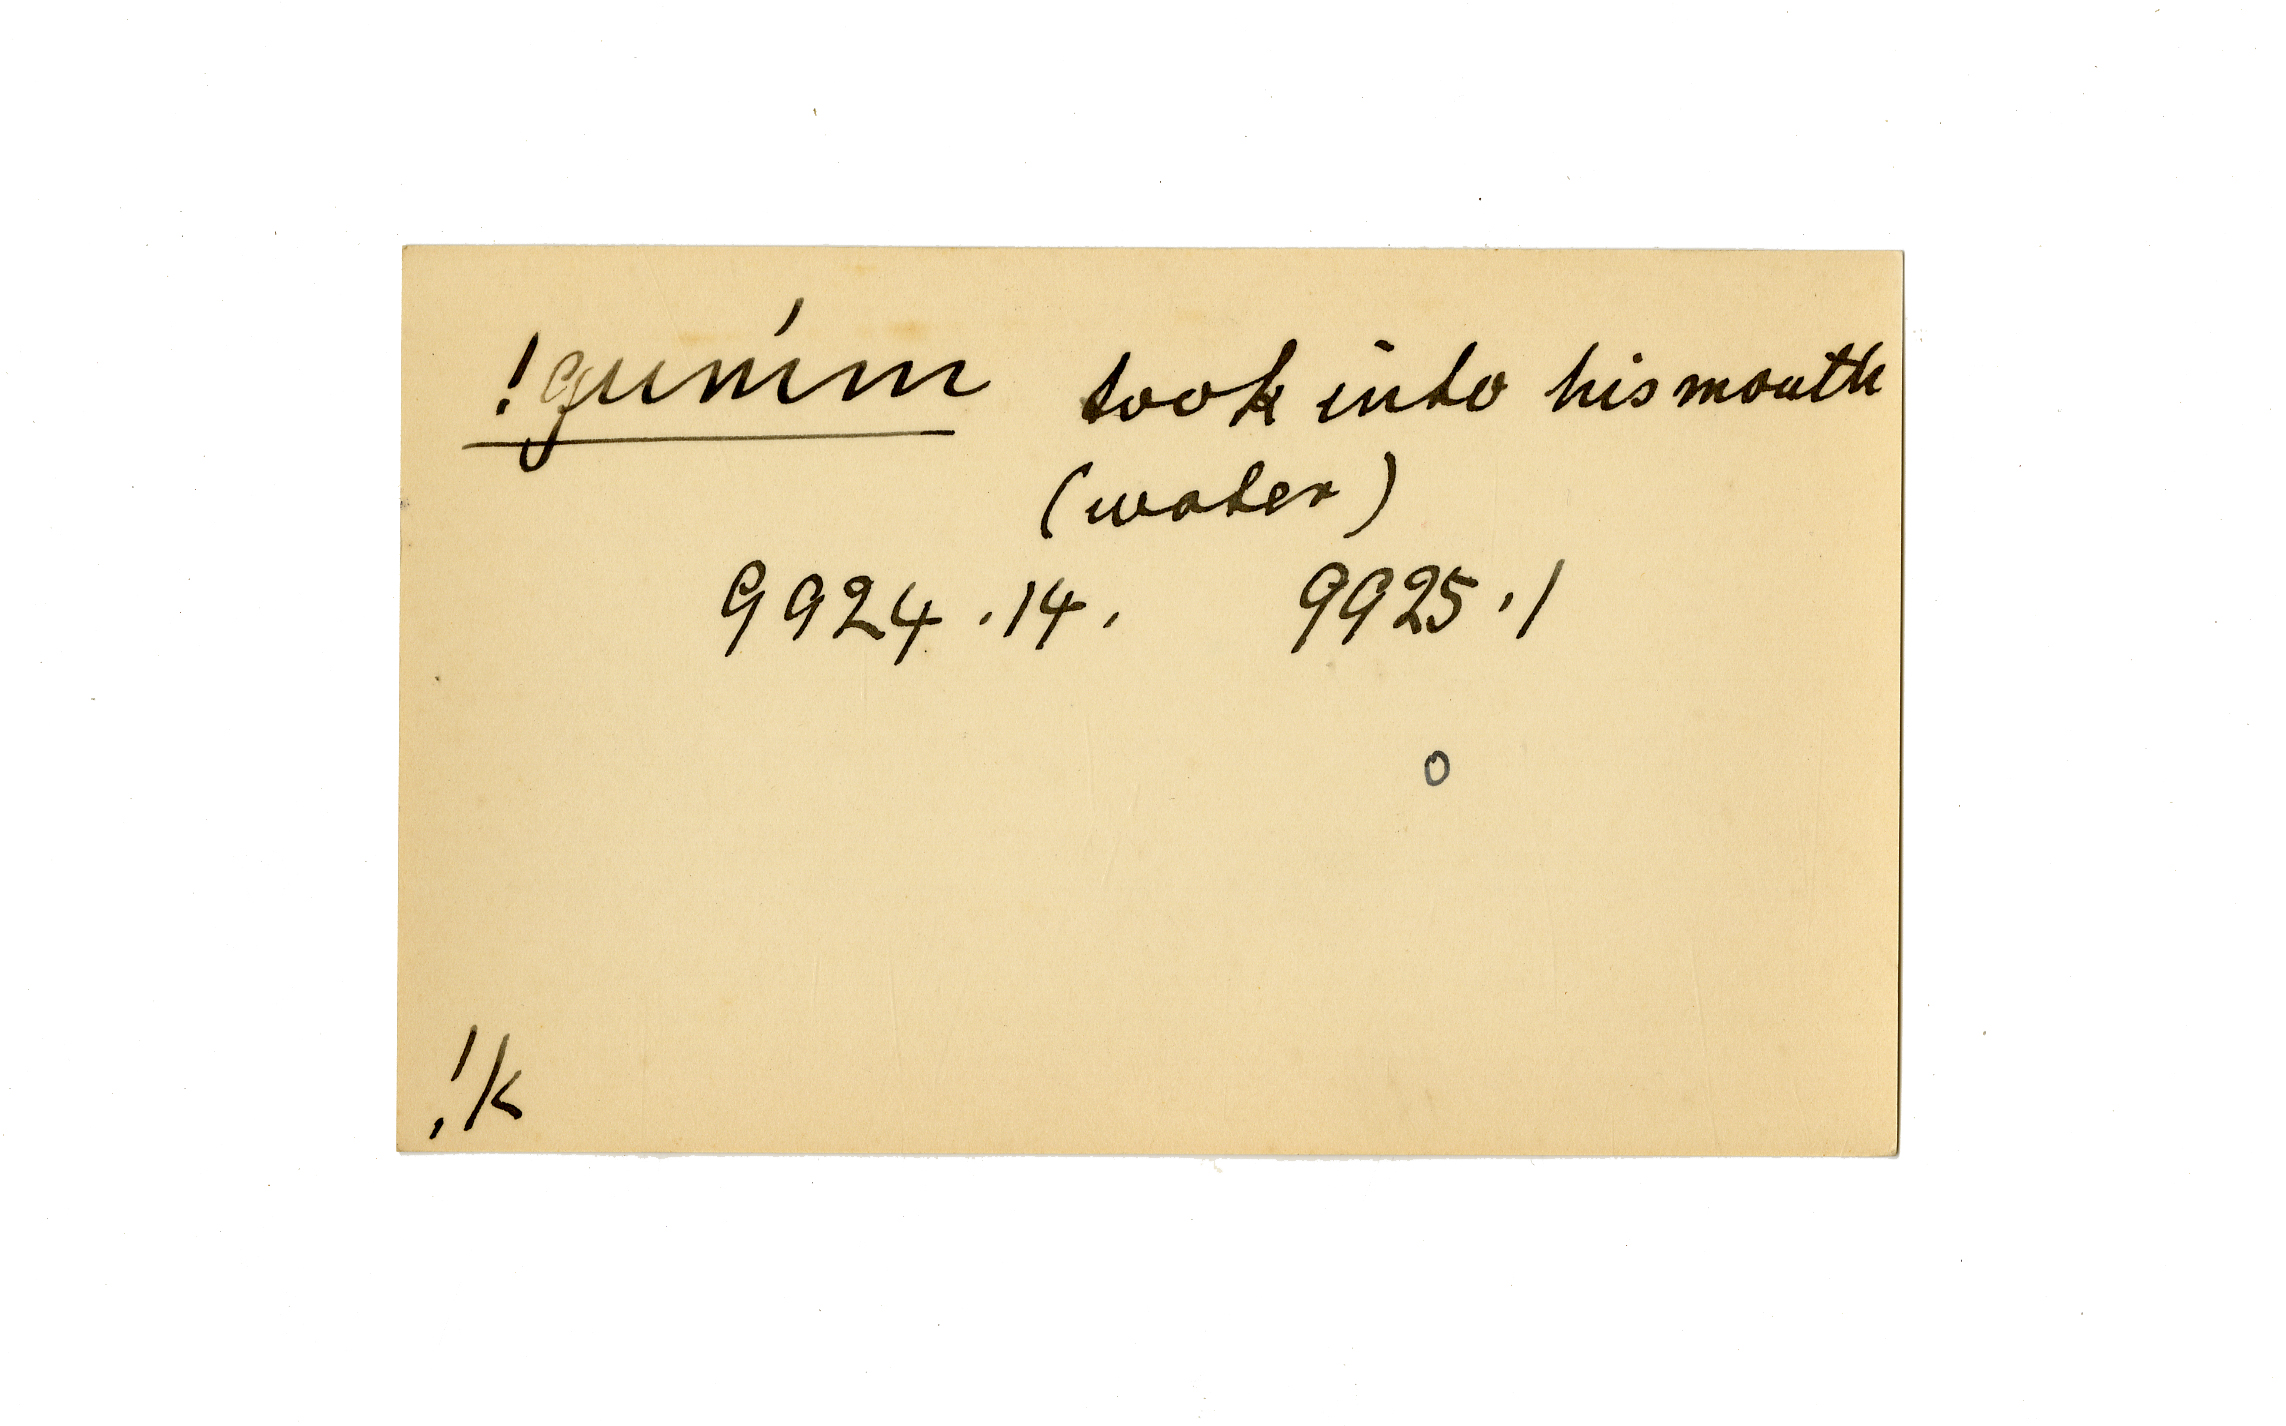 !gum'm took into his mouth
(water)
9924.14. 9925.1
o
!k